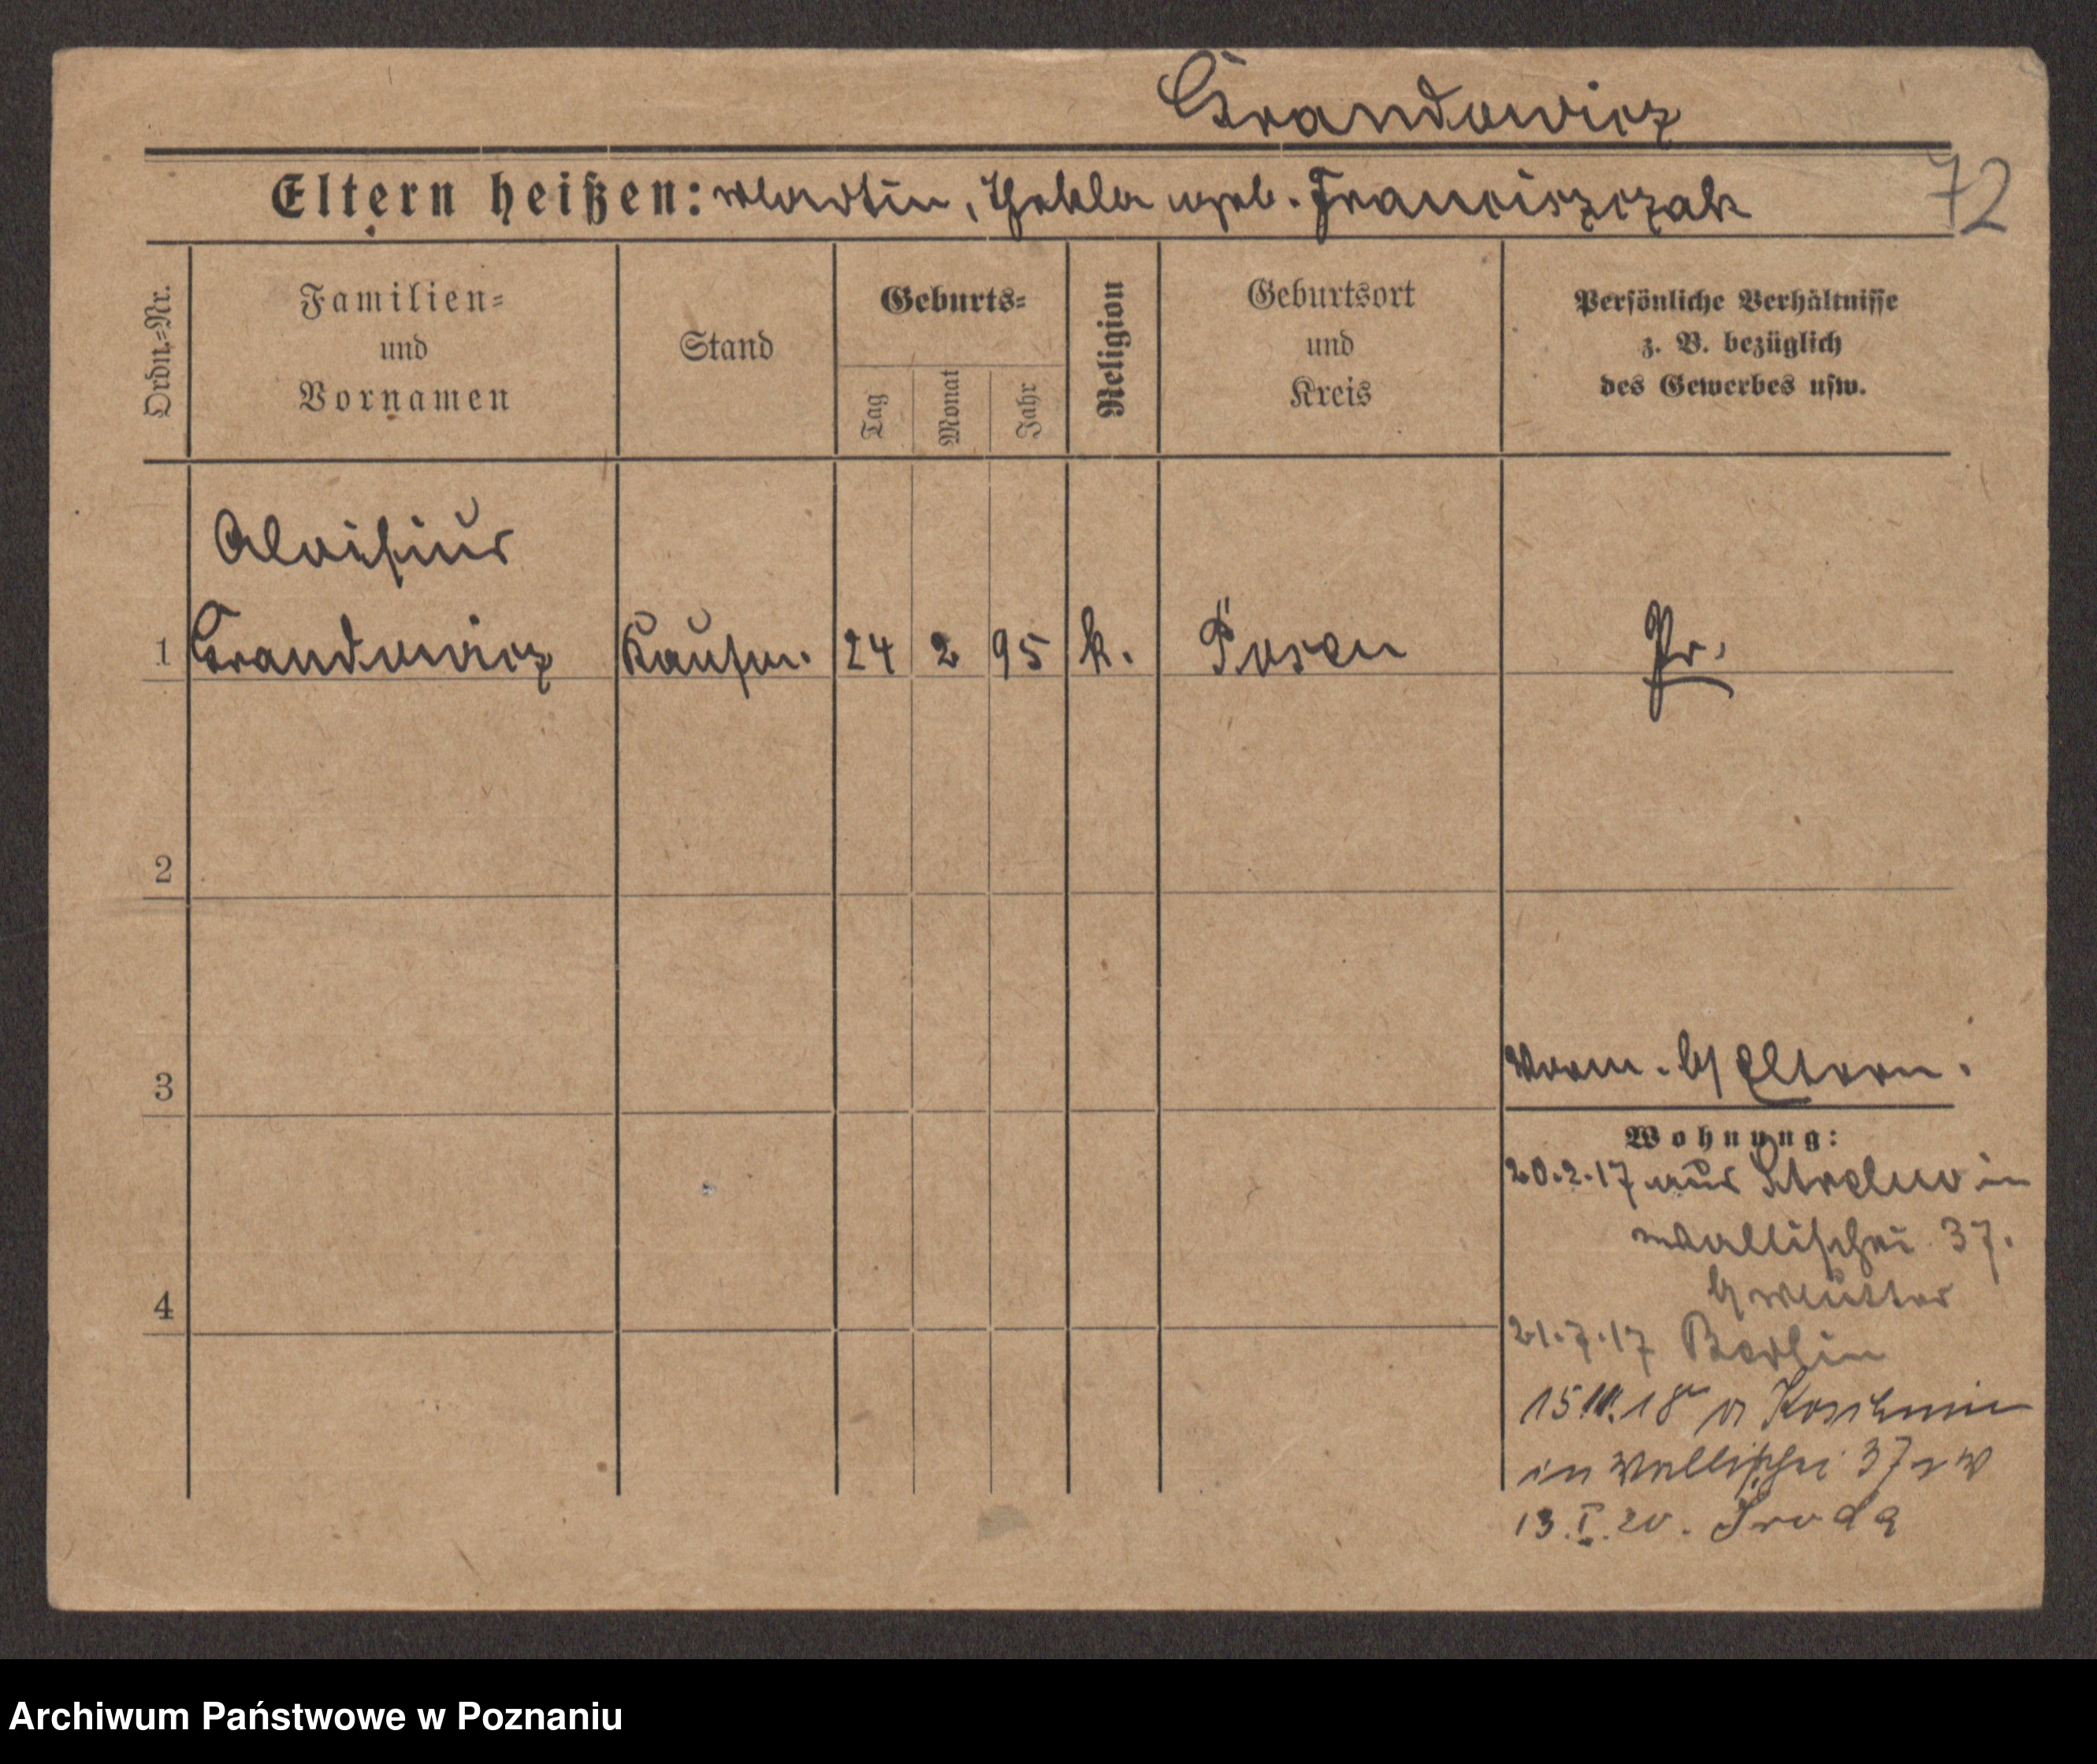 Grandowicz
72
Eltern heißen: Martin, Thekla geb. Franciszczak
Ordn.=Nr.
Familien=
und
Vornamen
Stand
Geburts=
Tag
Monat
Jahr
Religion
Geburtsort
und
Kreis
Persönliche Verhältnisse
z. B. bezüglich
des Gewerbes usw.
Aloisius
1 Grandowicz Kaufm. 24 2 95 k. Posen Pr.
2
3
vorm. b/ Eltern.
Wohnung:
20.2.17 aus Strelno in
Wallischei 37.
b/ Mutter
4
21.7.17 Berlin
15. 18 Koschmin
in Wallischei 37
13.I.20. Sroda
Archiwum Państwowe w Poznaniu